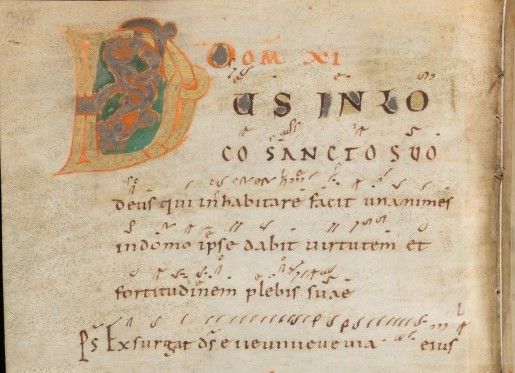 DOM̄ XI
DUS IN LO
CO SANCTO SUO
deus qui inhabitare facit unanimes
in domo ipse dabit uirtutem et
fortitudinem plebis suae
P̄s Exsurgat d̄s eius